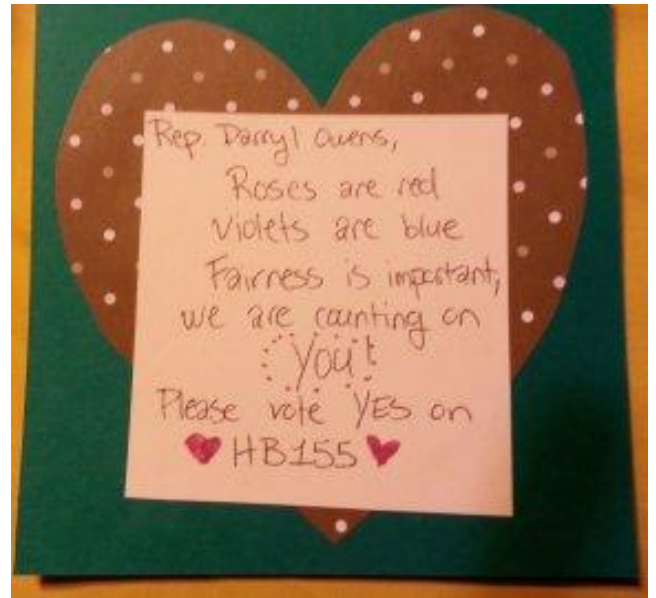 Rep. Darryl Owens,
Roses are red
Violets are blue
Fairness is important,
we are counting on
you!
Please vote YES on
HB155